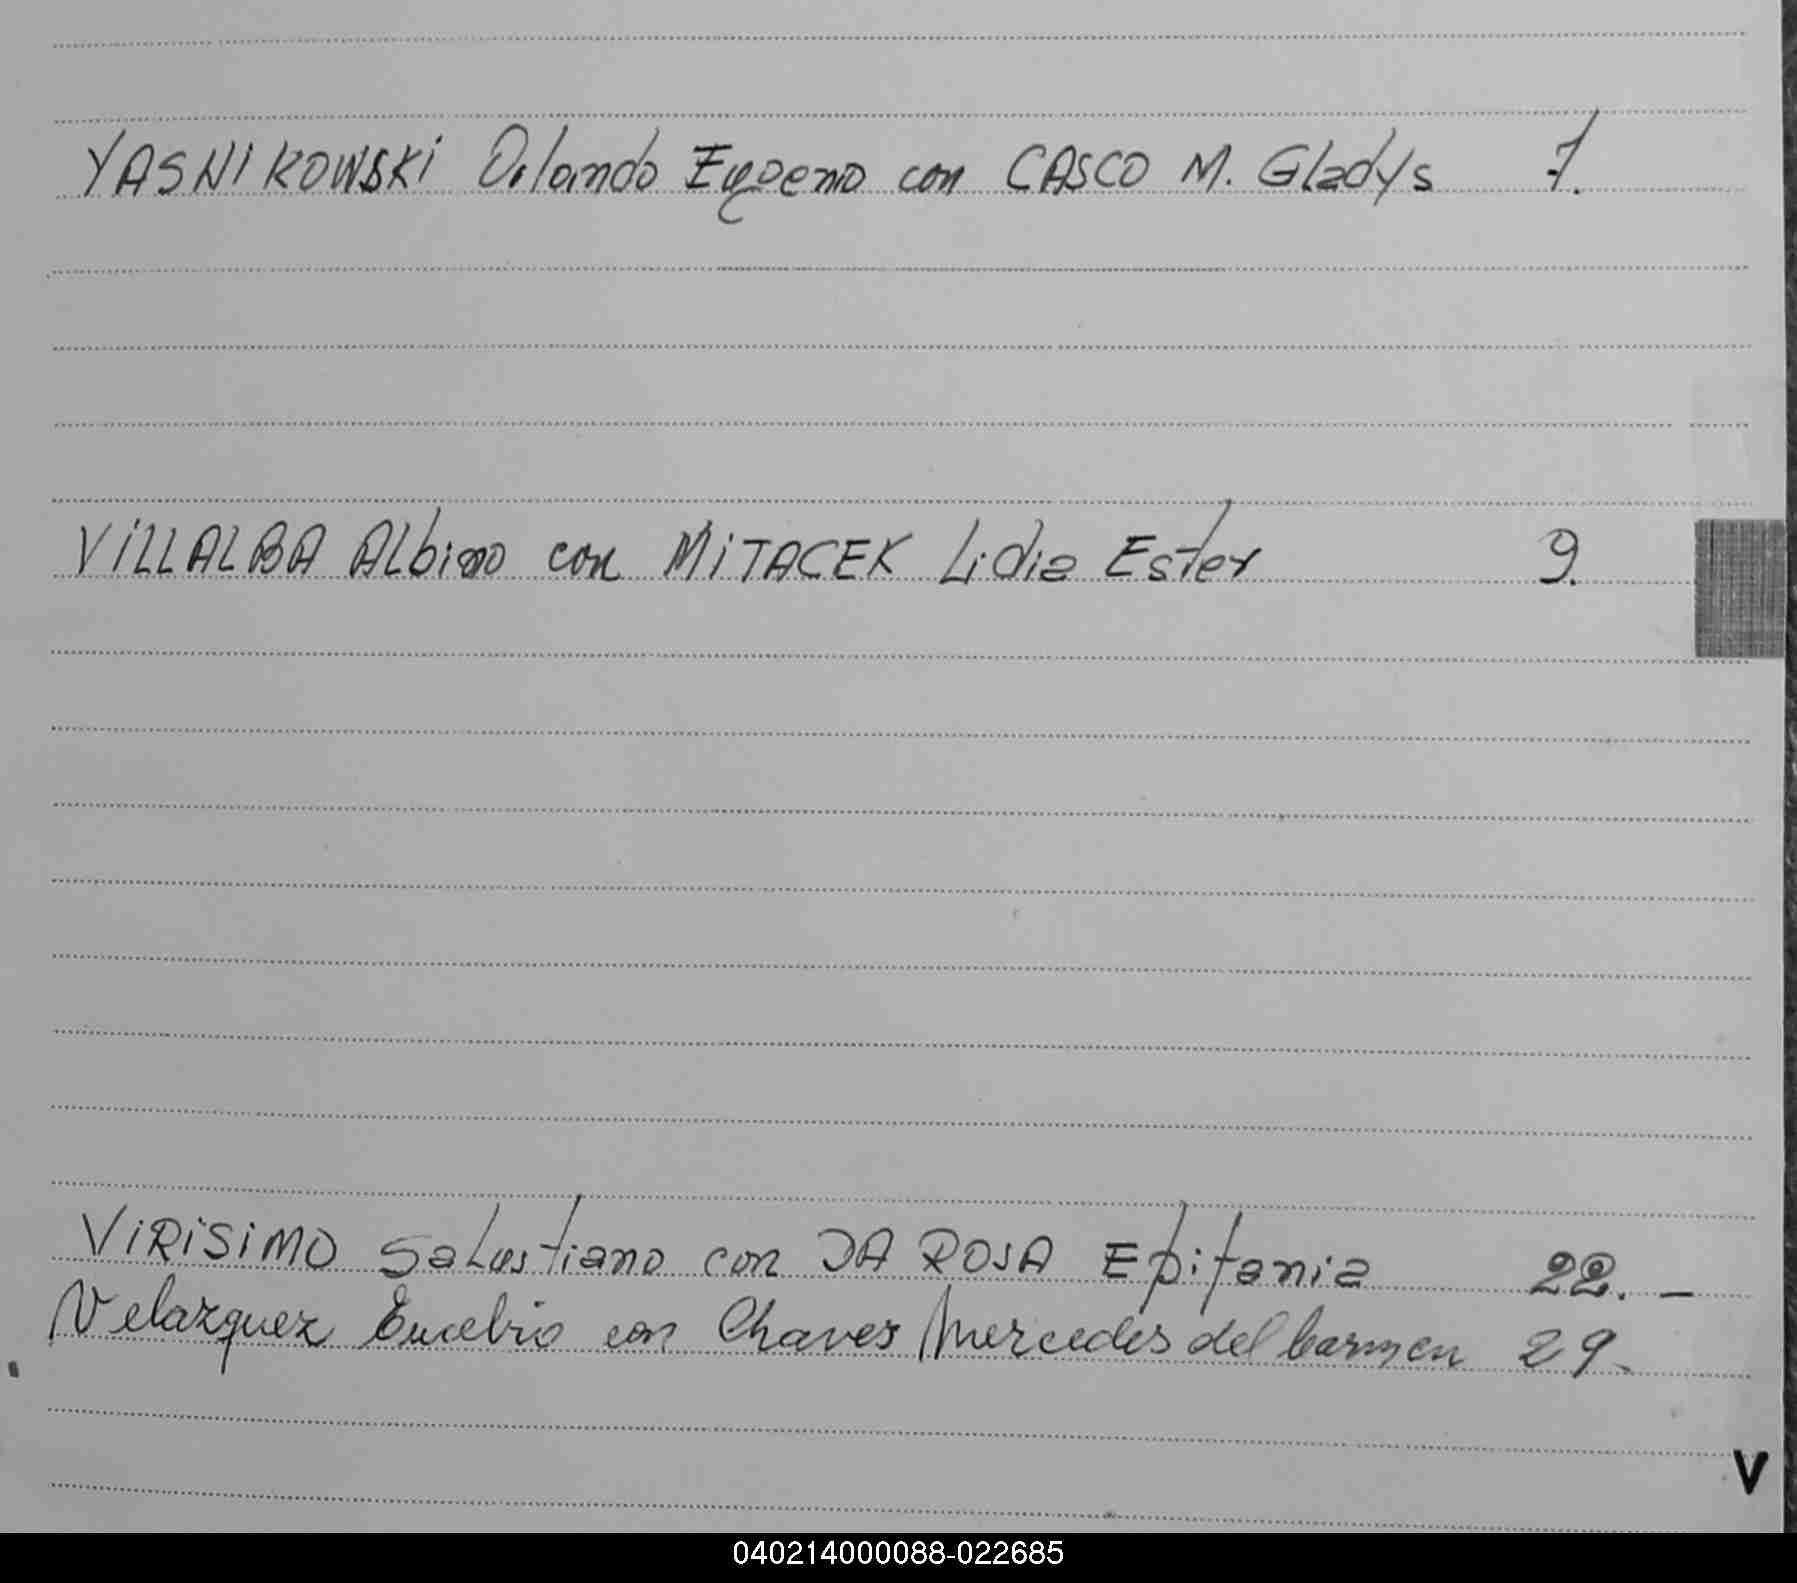 YASNIKOWSKI Orlando Eugenio con CASCO M. Gladys 7.
VILLALBA Albino con MITACEK Lidia Ester 9.
VIRISIMO Salustiano con DA ROSA Epifania 22. —
Velazquez Eucebio con Chaves Mercedes del Carmen 29.
V
040214000088-022685